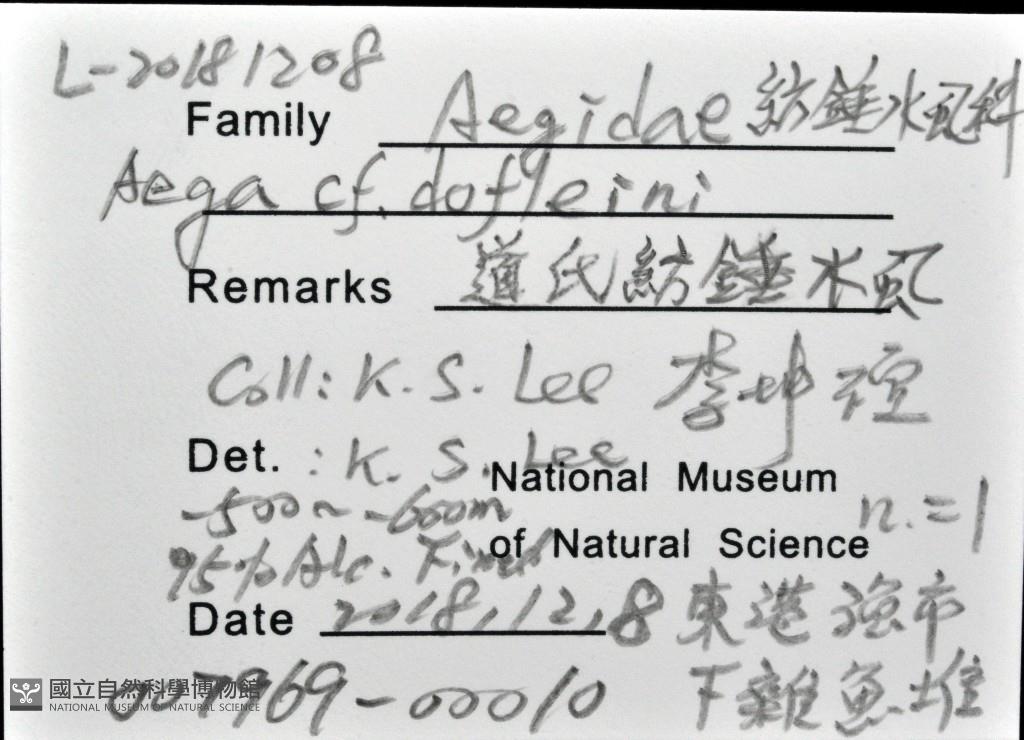 L-20181208
Family Aegidae 紡錘水虱科
Aega cf. dofleini
Remarks 道氏紡錘水虱
Coll: K. S. Lee 李坤瑄
Det. : K. S. Lee
National Museum
-500~-600m n.=1
of Natural Science
95% Alc. Fixed
Date 2018,12,8 東港漁市
7969-00010 下雜魚堆
國立自然科學博物館
NATIONAL MUSEUM OF NATURAL SCIENCE